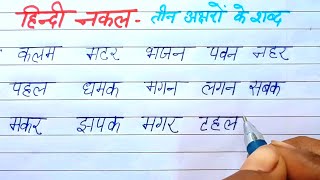 हिन्दी नकल - तीन अक्षरों के शब्द
कलम मटर भजन पवन नहर
पहल धमक मगन लगन सबक
मकर झपक मगर टहल